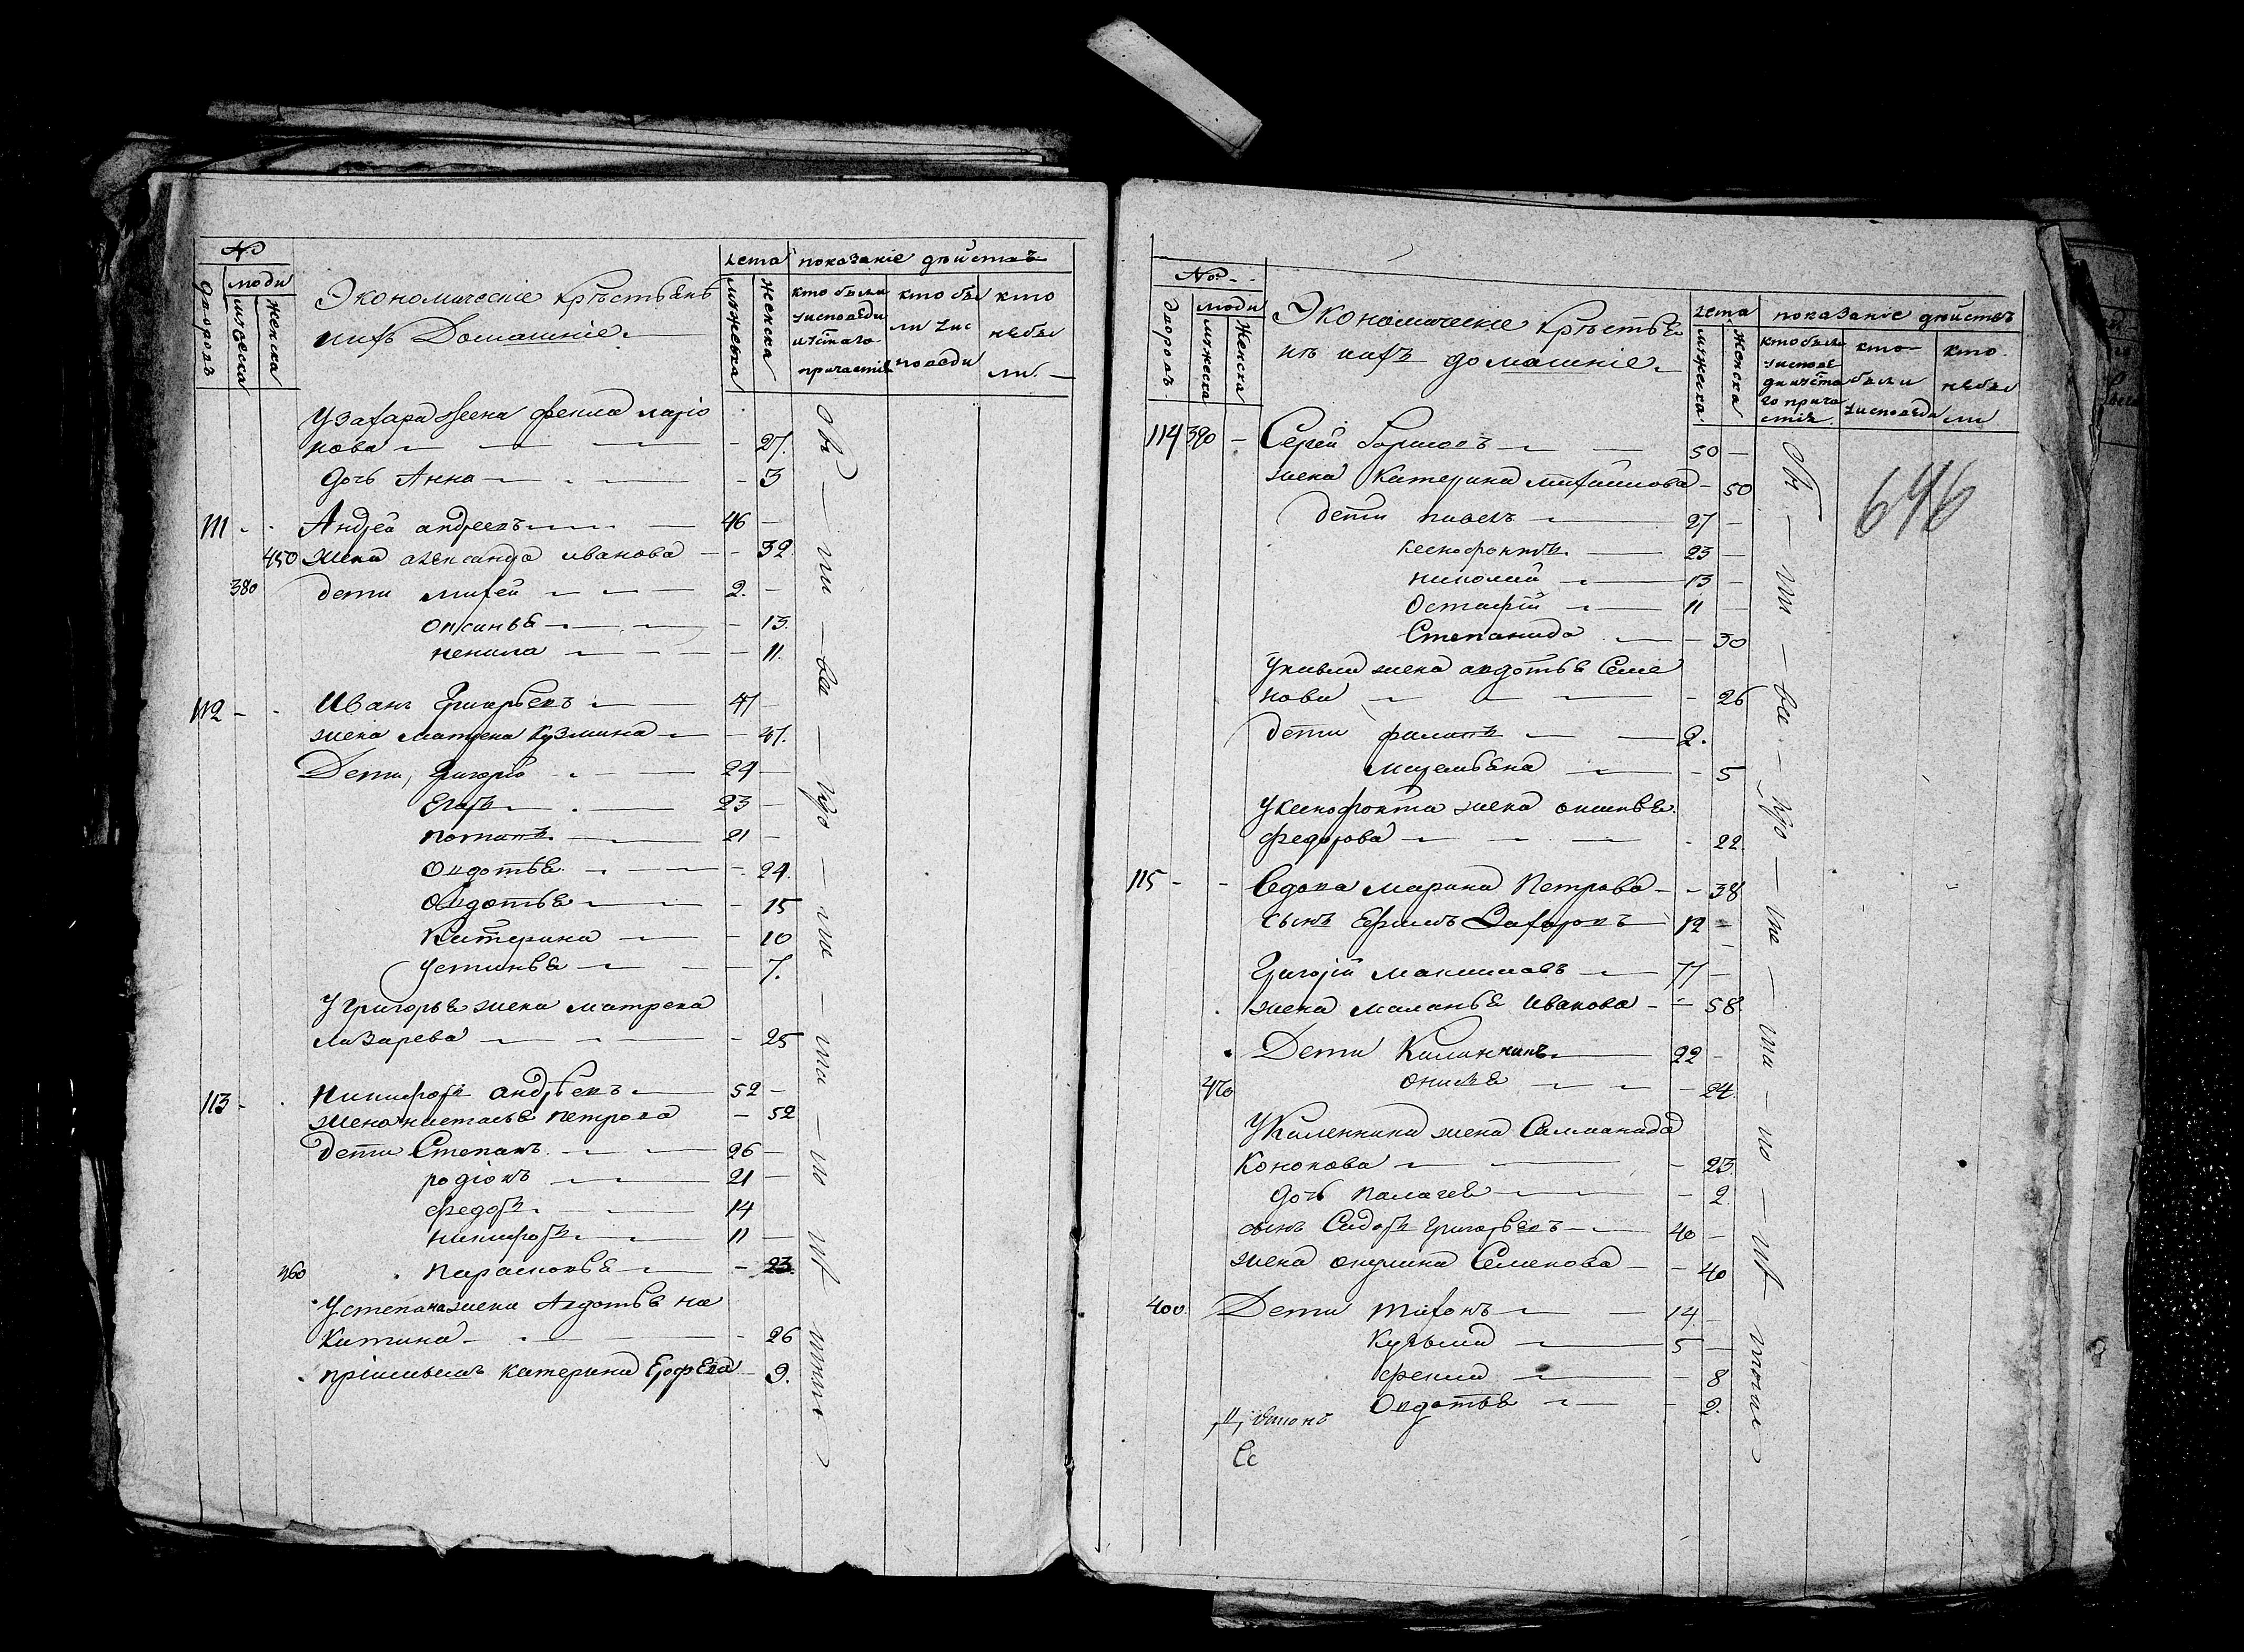 №
Двороⰲъ
люди
мужеска
женска
Экономическіе крѣстьѣнѣ
ихъ Домашніе
лета
мужеска
женска
показаніе действъ
кто были
уисповеди
исвтаго
причастія
кто бы
ли уис
поведи
кто
небы
ли
Узахара жена фекла ларіо
нова 27
дочь Анна 3
111 Андрей андреевъ 46
450 жена александра иванова 32
380 дети михей 2
оксинья 13
ненила 11
112 Иванъ Григорьевъ 47
жена матрена Кузмина 47
Дети, Григорій 24
Егоръ 23
потапъ 21
Овдотья 24
Овдотья 15
Катерина 10
устинья 7
У Григорья жена матрена
лазарева 25
113 Никифоръ андрѣевъ 52
жена настасья петрова 52
дети Степанъ 26
родіонъ 21
федоръ 14
никифоръ 11
460 Парасковья 23
Устепана жена Авдотья на
китина 26
пріимышъ катерина Ерофѣева 9
Обитавикудринапашшт
№
Дворовъ
люди
мужеска
женска
Экономическіе крѣстьѣ
нѣ ихъ домашніе
лета
мужеска
женска
показаніе действъ
кто были
уиспове
ди исвта
го прича
стія
кто
были
уисповеди
кто
небы
ли
646
114 390 Сергей Борисовъ 50
жена Катерина михайлова 50
дети павелъ 27
ксенофонтъ 23
николай 13
Остафій 11
Степанида 30
Упавла жена авдотья Семе
нова 26
дети филипъ 2
мелентьена 5
Уксенофонта жена оксинья
федорова 22
115 вдова марина Петрова 38
сынъ Ефимъ Захаровъ 12
Григорій максимовъ 77
жена маланья иванова 58
Дети Калинникъ 22
470 онисья 24
Укаленника жена Саламанида
Кононова 23
дочь палагея 2
сынъ Сидоръ Григорьевъ 40
жена окулина Семенова 40
400 Дети тихонъ 14
Кузьма 5
фекла 8
Овдотья 2